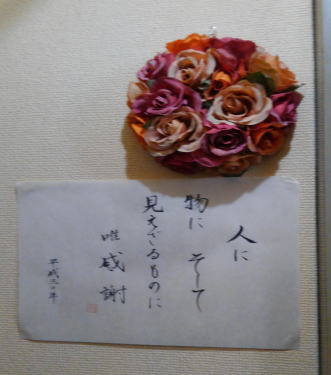 人に
物に そして
見えざるものに
唯感謝
平成三〇年